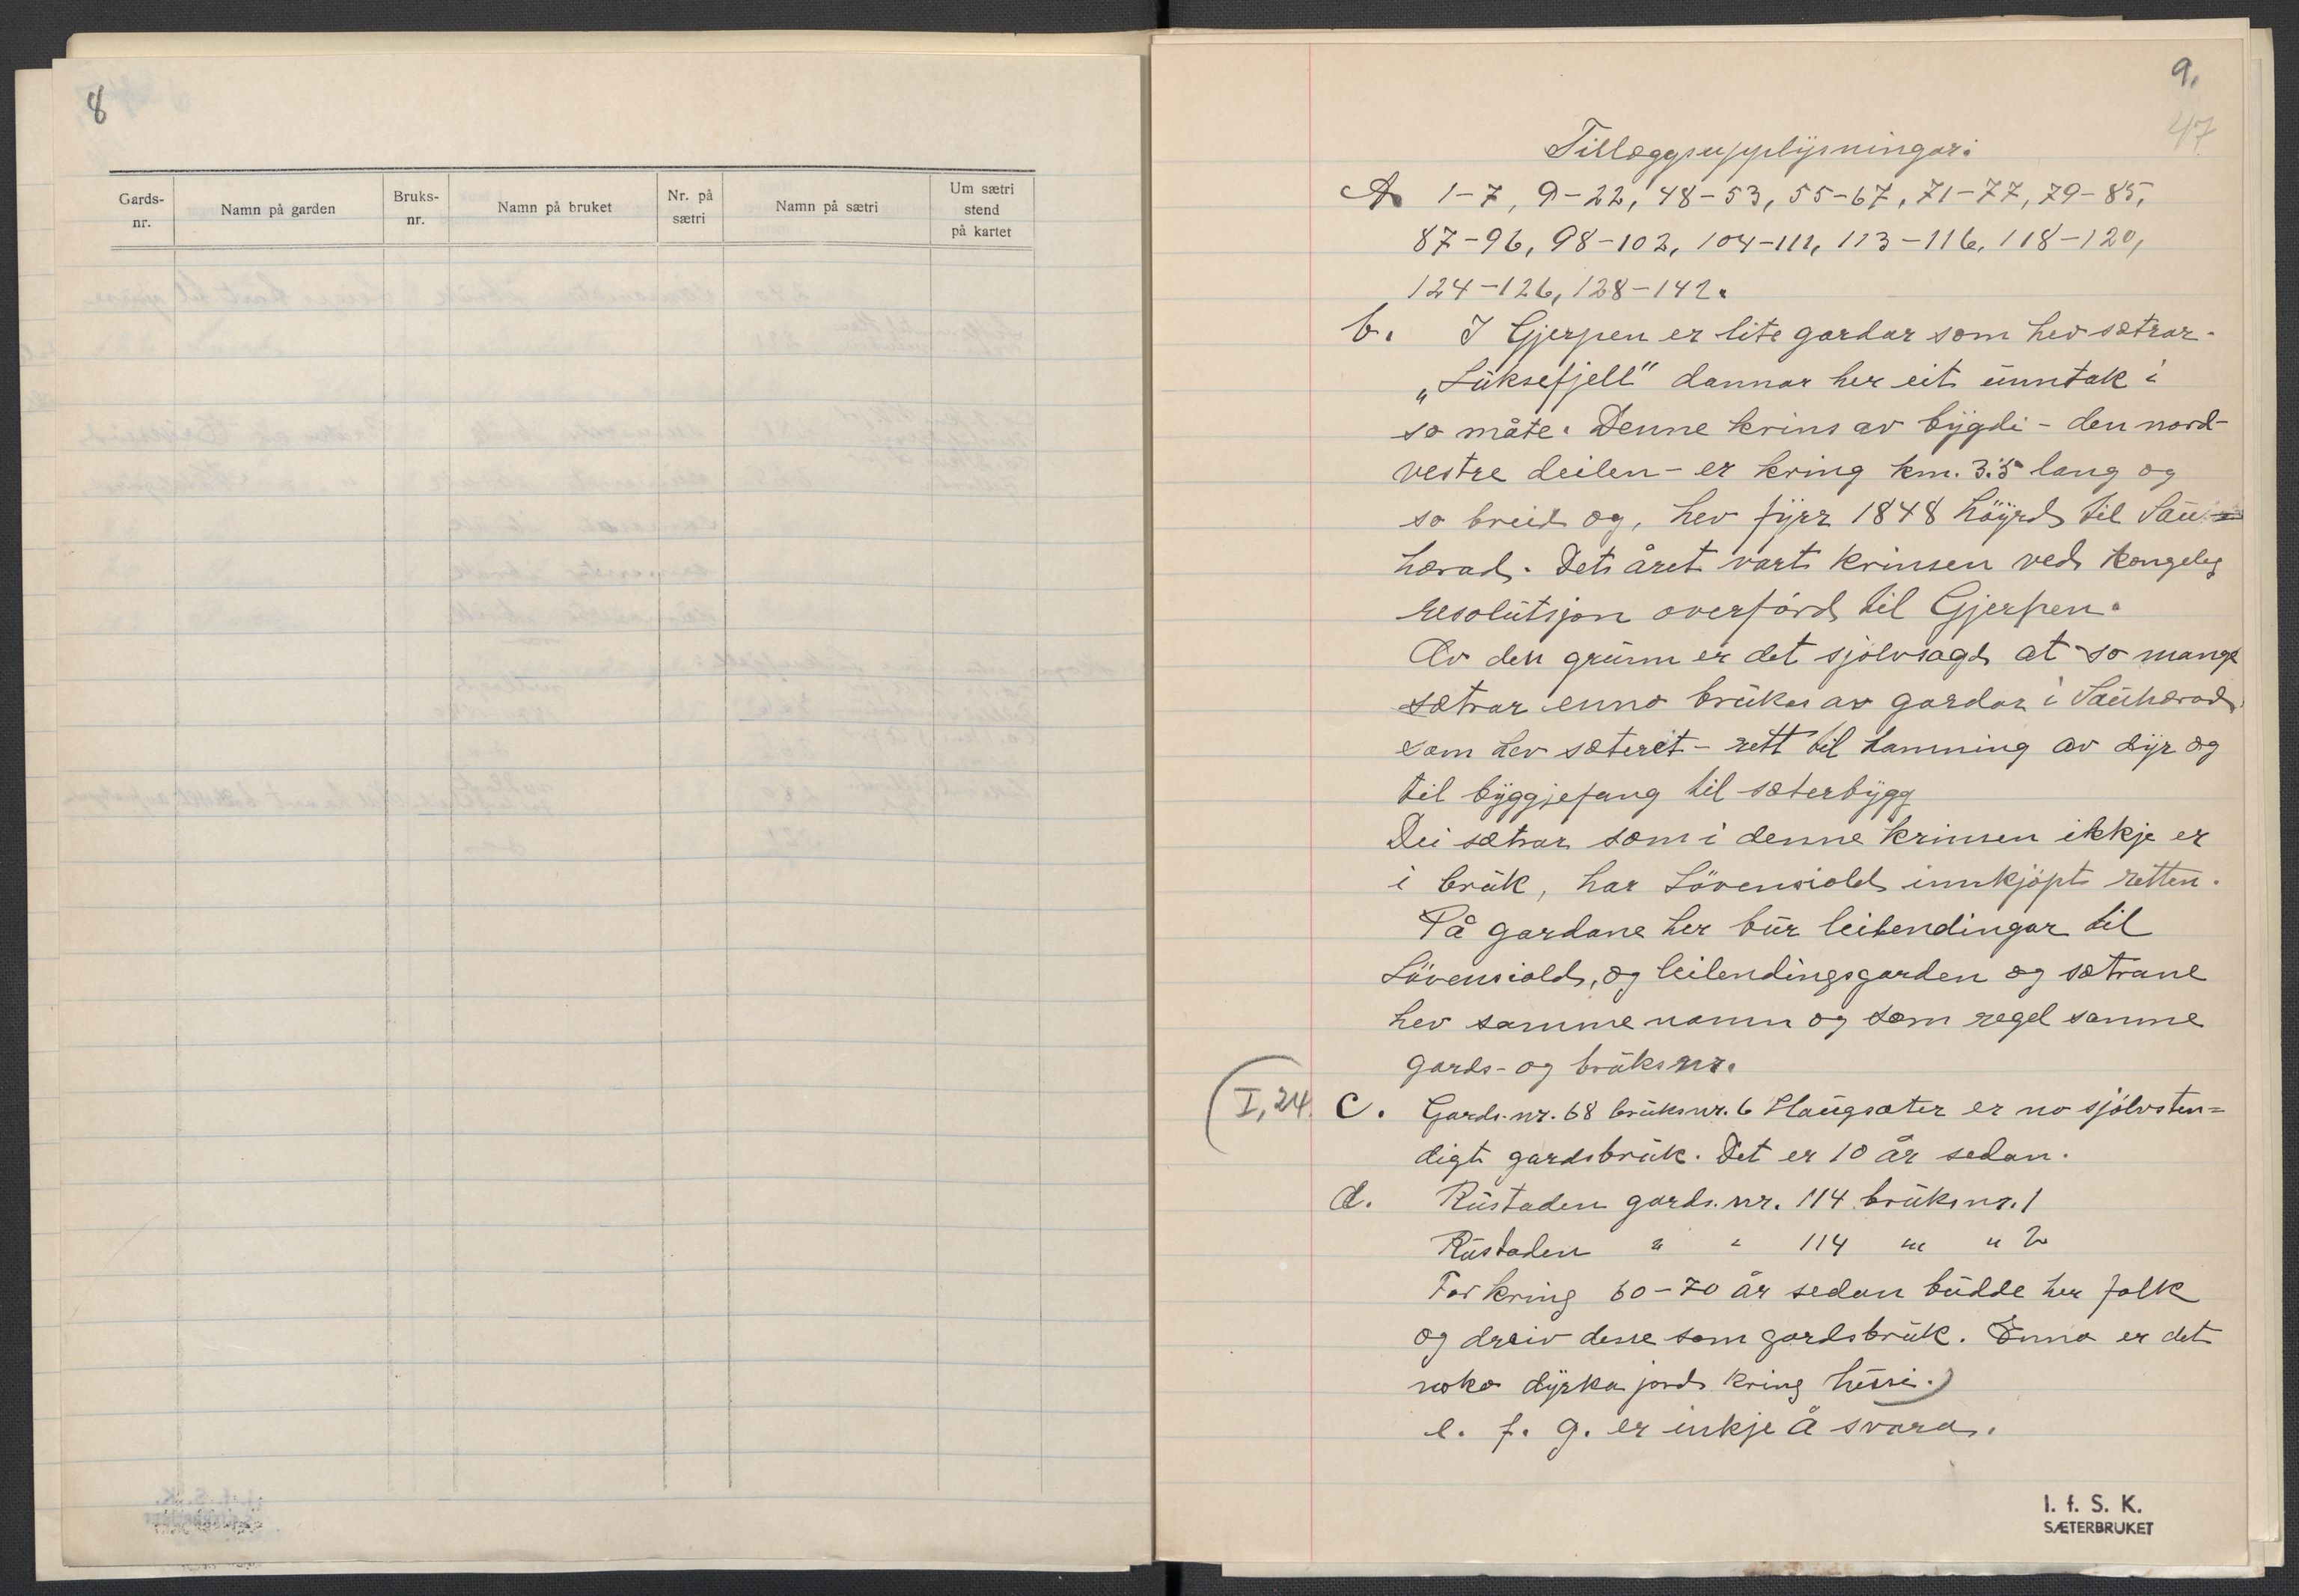 8
Gards-
nr.
Namn på garden
Bruks-
nr.
Namn på bruket
Nr. på
sætri
Namn på sætri
Um sætri
stend
på kartet
9.
47
Tillæggsupplysningar:
A 1-7, 9-22, 48-53, 55-67, 71-77, 79-85,
87-96, 98-102, 104-111, 113-116, 118-120,
124-126, 128-142.
b. I Gjerpen er lite gardar som hev sætrar.
"Luksefjell" dannar her eit unntak i
so måte. Denne krins av bygdi - den nord-
vestre deilen - er kring km. 3.5 lang og
so breid og, hev fyrr 1848 höyrd til Sau-
herad. Det året vart krinsen ved kongeleg
resolutsjon overförd til Gjerpen.
Av den grunn er det sjölvsagd at so mange
sætrar enno brukas av gardar i Sauherad
som hev sæteret - rett til hamning av dyr og
til byggjefang til sæterbygg
Dei sætrar som i denne krinsen ikkje er
i bruk, har Lövensiold innkjöpt retten.
På gardane her bur leilendingar til
Lövensiold, og leilendingsgarden og sætrane
hev samme namn og som regel samme
gards- og bruksnr.
I, 24. C. Gards.nr. 68 bruksnr. 6 Haugsæter er no sjölvsten=
digt gardsbruk. Det er 10 år sedan.
d. Rustaden gards.nr. 114 bruksnr. 1
Rustaden " " 114 " " 2
For kring 60-70 år sedan budde her folk
og dreiv desse som gardsbruk. Enno er det
noko dyrka jord kring husi.)
e. f. g. er inkje å svara.
I. f. S. K.
SÆTERBRUKET